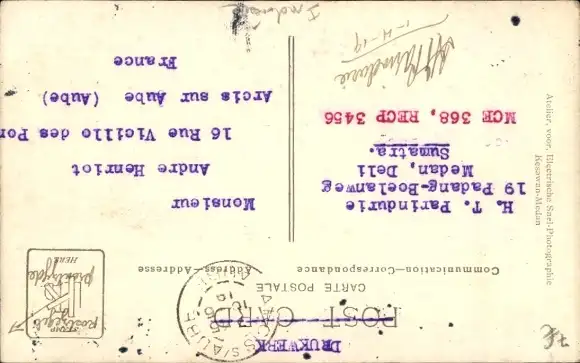 DRUKWERK
POST CARD
CARTE POSTALE
Communication—Correspondance
Address—Adresse
H. T. Parindurie
19 Padang-Boelanweg
Medan, Deli
Sumatra.
MCE 368, RECP 3456
1-4-19
Monsieur
Andre Henriot
16 Rue Vieille des Por
Arcis sur Aube (Aube)
France
ARCIS S/AUBE
HERE
Atelier, voor, Electrische Snel-Photographie
Kesawan-Medan